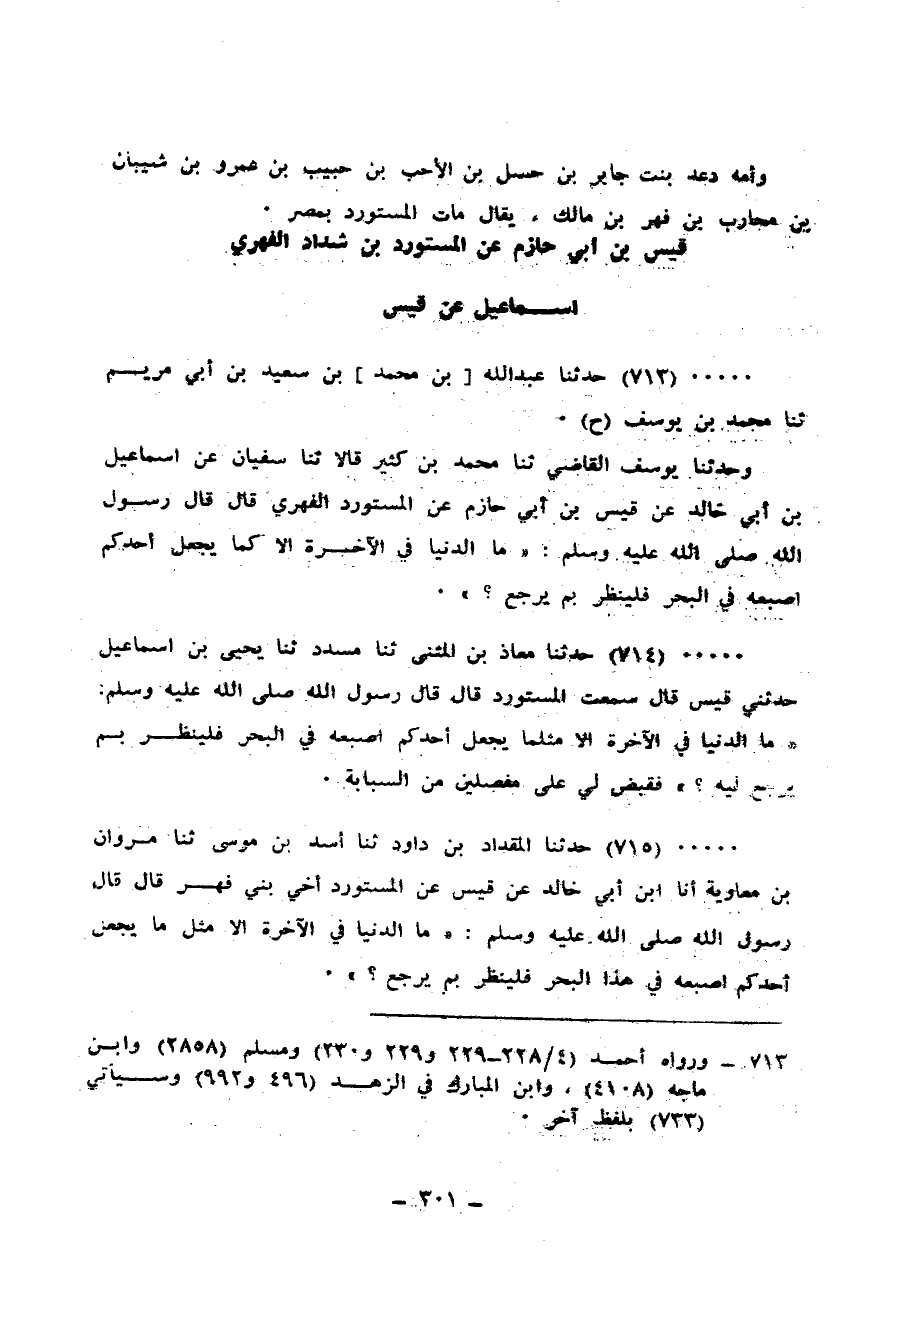 وأمه دعد بنت جابر بن حسل بن الأحب بن حبيب بن عمرو بن شيبان
بن محارب بن فهر بن مالك ، يقال مات المستورد بمصر ٠
قيس بن أبي حازم عن المستورد بن شداد الفهري
اسـماعيل عن قيس
٠٠٠٠٠ (٧١٣) حدثنا عبدالله [ بن محمد ] بن سعيد بن أبي مريـم
ثنا محمد بن يوسف (ح) ٠
وحدثنا يوسف القاضي ثنا محمد بن كثير قالا ثنا سفيان عن اسماعيل
بن أبي خالد عن قيس بن أبي حازم عن المستورد الفهري قال قال رسـول
الله صلى الله عليه وسلم : « ما الدنيا في الآخـرة الا كما يجعل أحدكم
اصبعه في البحر فلينظر بم يرجع ؟ » ٠
٠٠٠٠٠ (٧١٤) حدثنا معاذ بن المثنى ثنا مسدد ثنا يحيى بن اسماعيل
حدثني قيس قال سمعت المستورد قال قال رسول الله صلى الله عليه وسلم:
« ما الدنيا في الآخرة الا مثلما يجعل أحدكم اصبعه في البحر فلينظـر بـم
يرجع فيه ؟ » فقبض لي على مفصلين من السبابة ٠
٠٠٠٠٠ (٧١٥) حدثنا المقداد بن داود ثنا أسد بن موسى ثنا مـروان
بن معاوية أنا ابن أبي خالد عن قيس عن المستورد أخي بني فهـر قال قال
رسول الله صلى الله عليه وسلم : « ما الدنيا في الآخرة الا مثل ما يجعل
أحدكم اصبعه في هذا البحر فلينظر بم يرجع ؟ » ٠
٧١٣ ـ ورواه أحمـد (٤/٢٢٨ـ٢٢٩ و٢٢٩ و٢٣٠) ومسلم (٢٨٥٨) وابـن
ماجه (٤١٠٨) ، وابن المبارك في الزهـد (٤٩٦ و٩٩٢) وسـيأتي
(٧٣٣) بلفظ آخر ٠
ـ ٣٠١ ـ